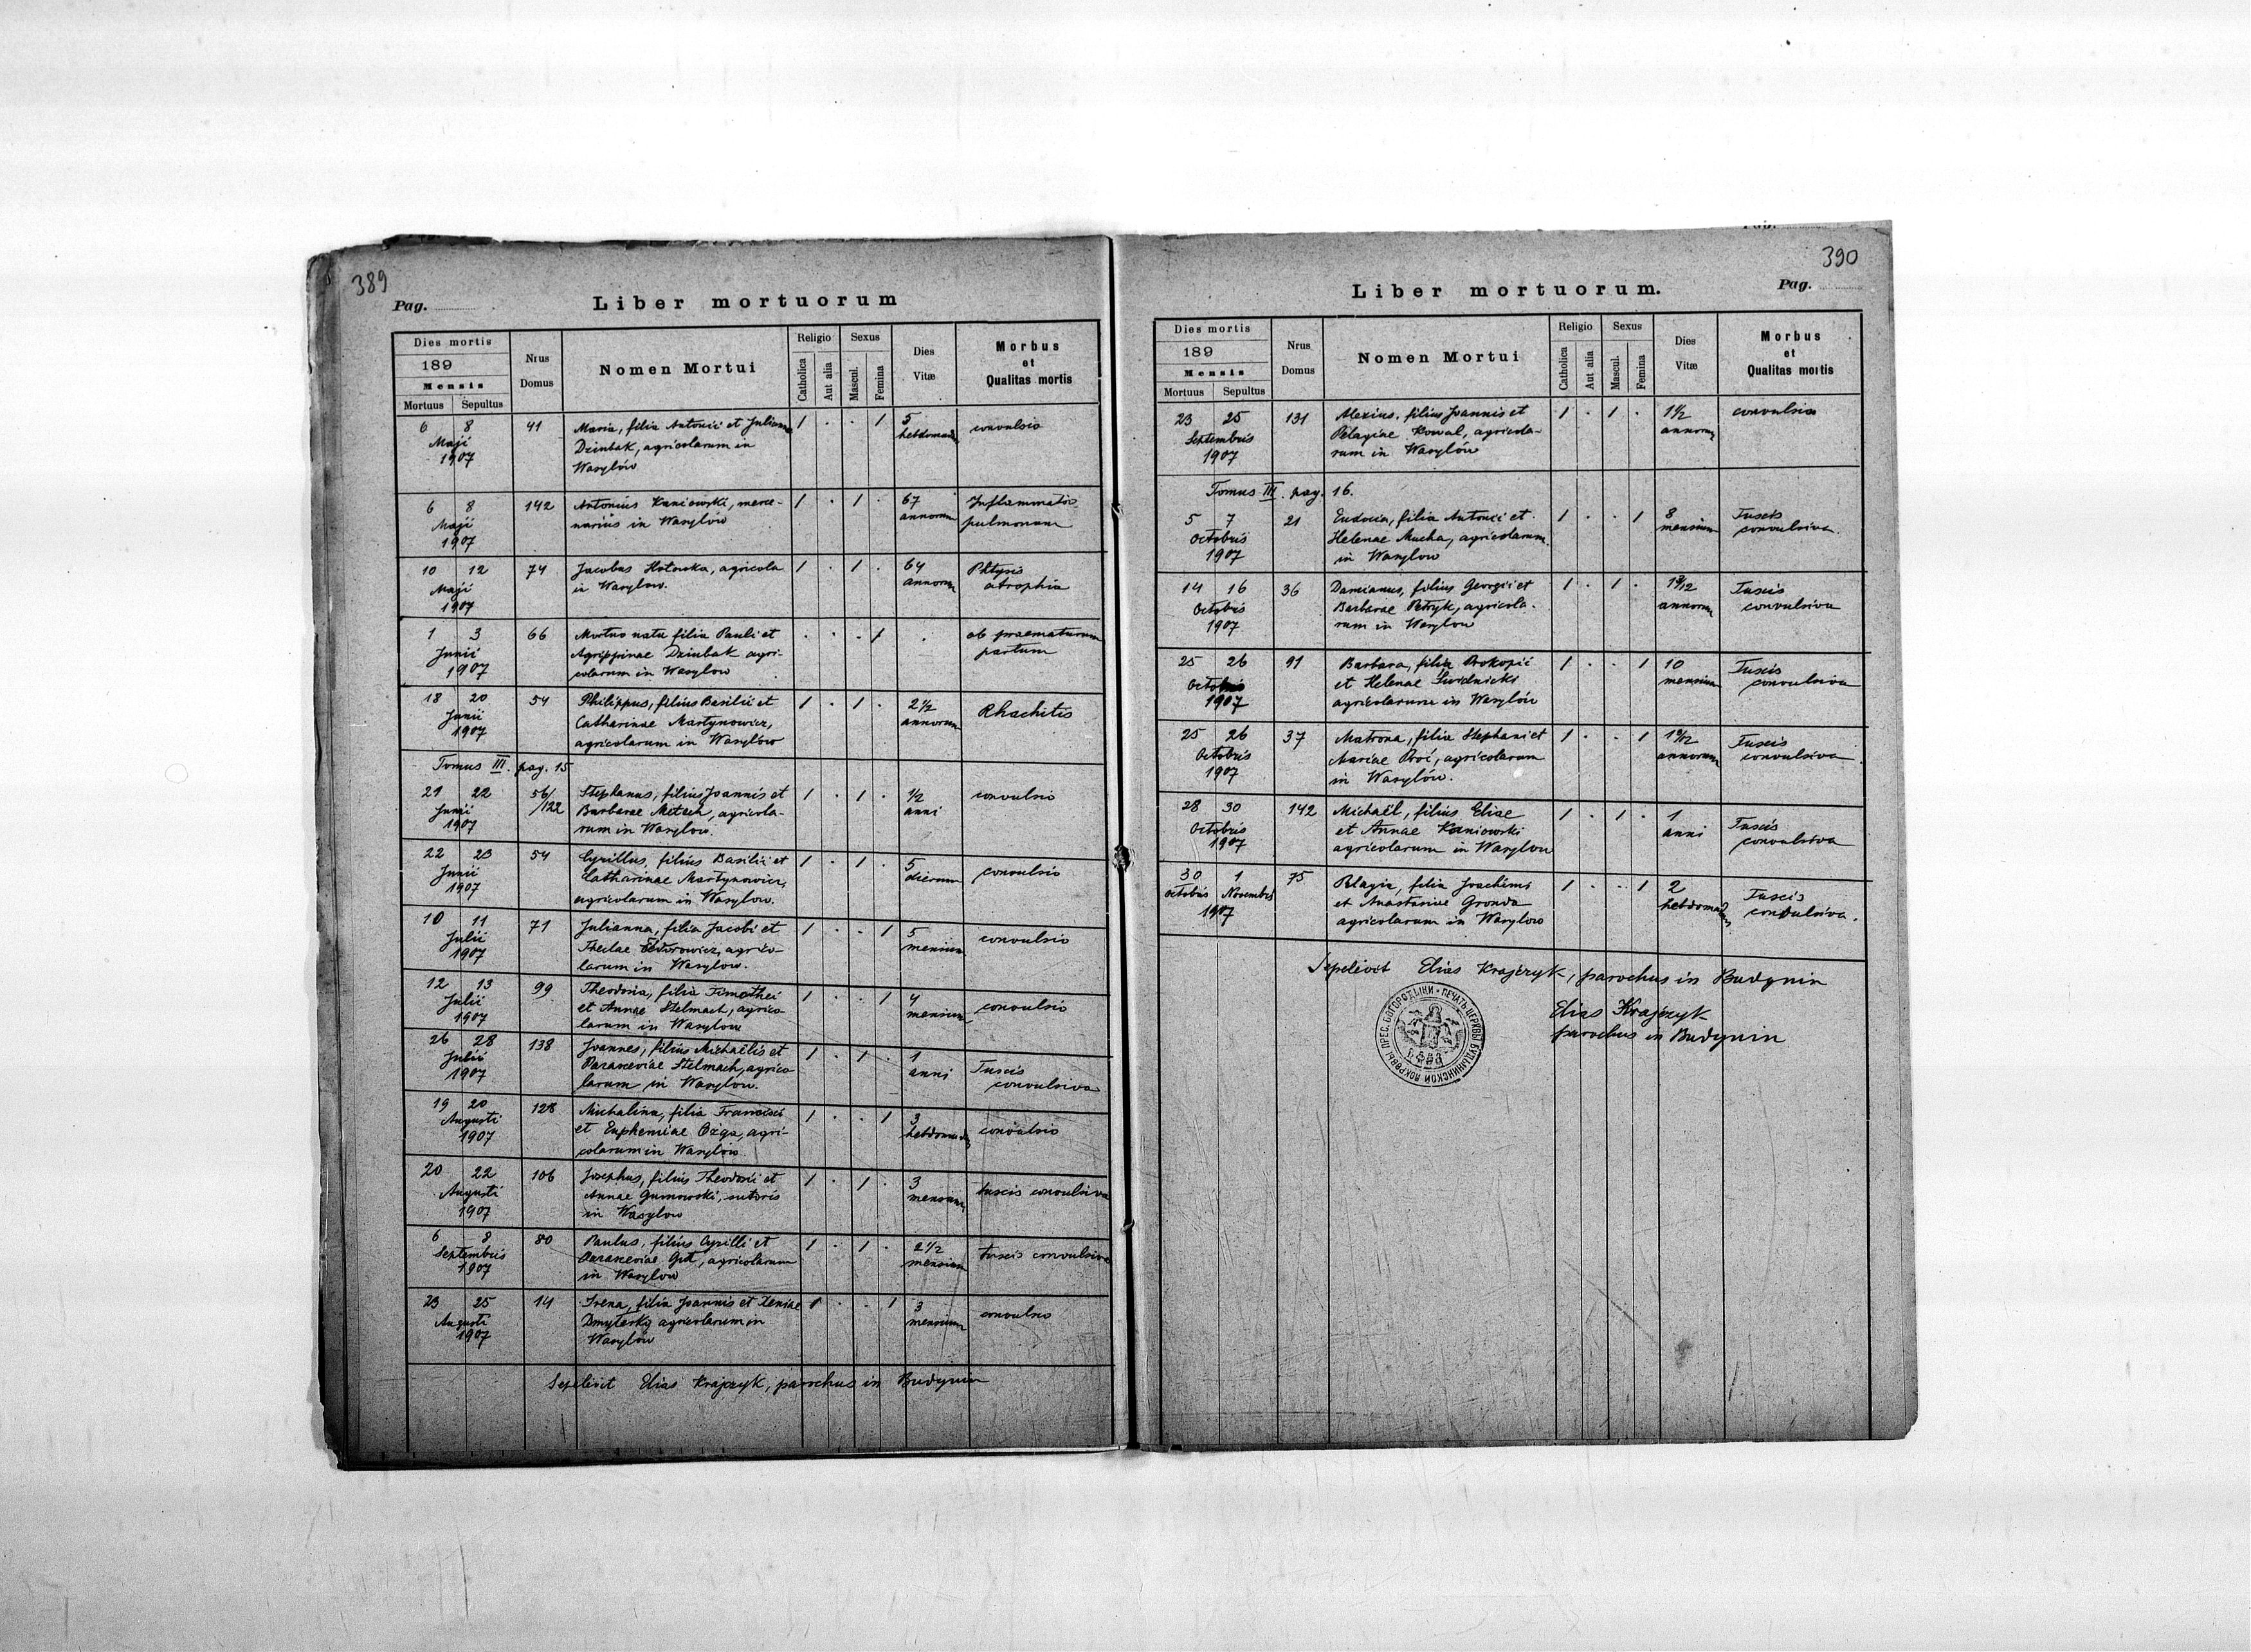 389
Pag.
Liber mortuorum
Dies mortis
189
Mensis
Mortuus Sepultus
Nrus Domus
Nomen Mortui
Religio
Catholica Aut alia
Sexus
Mascul. Femina
Dies Vitæ
Morbus et Qualitas mortis
6 8 41 Maria, filia Antonii et Julianna / . . / 5 convulsio
Maji Dziubak, agricolarum in hebdomad
1907 Wasylów
6 8 142 Antonius Kaniowski, merce- / . / . 67 Inflammatio
Maji narius in Wasylów annorum pulmonum
1907
10 12 74 Jacobus Hotowka, agricola / . / . 64 Phtysis
Maji in Wasylow. annorum atrophia
1907
1 3 66 Mortuo nata filia Pauli et . . . / . ob praematurum
Junii Agrippinae Dziubak agri- partum
1907 colarum in Wasylow
18 20 54 Philippus, filius Basilii et / . / . 2 1/2 Rhachitis
Junii Catharinae Martynowicz, annorum
1907 agricolarum in Wasylów
Tomus III. pag. 15
21 22 56/122 Stephanus, filius Joannis et / . / . 1/2 convulsio
Junii Barbarae agricola- anni
1907 rum in Wasylow.
22 23 54 Cyrillus, filius Basilii et / . / . 5 convulsio
Junii Catharinae Martynowicz, dierum
1907 agricolarum in Wasylow.
10 11 71 Julianna, filia Jacobi et / . . / 5 convulsio
Julii Theclae agrico- mensium
1907 larum in Wasylow.
12 13 99 Theodosia, filia Timothei / . . / 4 convulsio
Julii et Annae Stelmach, agrico- mensium
1907 larum in Wasylow
26 28 138 Joannes, filius Michaëlis et / . / . 1 Tussis
Julii Parasceviae Stelmach, agrico- anni convulsiva
1907 larum in Wasylow.
19 20 128 Michalina, filia Francisci / . . / 3 convulsio
Augusti et Euphemiae Ożga, agri- hebdomad
1907 colarum in Wasylów.
20 22 106 Josephus, filius Theodorii et / . / . 3 tussis convulsiva
Augusti Annae Gumowski, sutoris mensium
1907 in Wasylow
6 8 80 Paulus, filius Cyrilli et / . / . 2 1/2 tussis convulsiva
Septembris Parasceviae agricolarum mensium
1907 in Wasylow
23 25 14 Irena, filia Joannis et Xeniae / . . / 3 convulsio
Augusti agricolarum in mensium
1907 Wasylów
Sepelivit Elias Krajczyk, parochus in Budynin
390
Liber mortuorum.
Pag.
Dies mortis
189
Mensis
Mortuus Sepultus
Nrus Domus
Nomen Mortui
Religio
Catholica Aut alia
Sexus
Mascul. Femina
Dies Vitæ
Morbus et Qualitas mortis
23 25 131 Alexius, filius Joannis et / . / . 1 1/2 convulsio
Septembris Pelagiae Kowal, agricola- annorum
1907 rum in Wasylów
Tomus III. pag. 16.
5 7 21 Eudocia, filia Antonii et / . . / 8 Tussis
Octobris Helenae Mucha, agricolarum mensium convulsiva.
1907 in Wasylow
14 16 36 Damianus, filius Georgii et / . / . Tussis
Octobris Barbarae Petryk, agricola- annorum convulsiva
1907 rum in Wasylow
25 26 91 Barbara, filia Prokopii / . . / 10 Tussis
Octobris et Helenae Świdnicki mensium convulsiva
1907 agricolarum in Wasylów
25 26 37 Matrona, filia Stephani et / . . / Tussis
Octobris Mariae agricolarum annorum convulsiva
1907 in Wasylów.
28 30 142 Michaël, filius Eliae / . / . 1 Tussis
Octobris et Annae Kaniowski anni convulsiva
1907 agricolarum in Wasylow
30 1 75 Pelagia, filia Joachimi / . . / 2 Tussis
octobris Novembris et Anastasiae Gronda hebdomad convulsiva.
1907 agricolarum in Wasylow
Sepelivit Elias Krajczyk, parochus in Budynin
Elias Krajczyk
parochus in Budynin